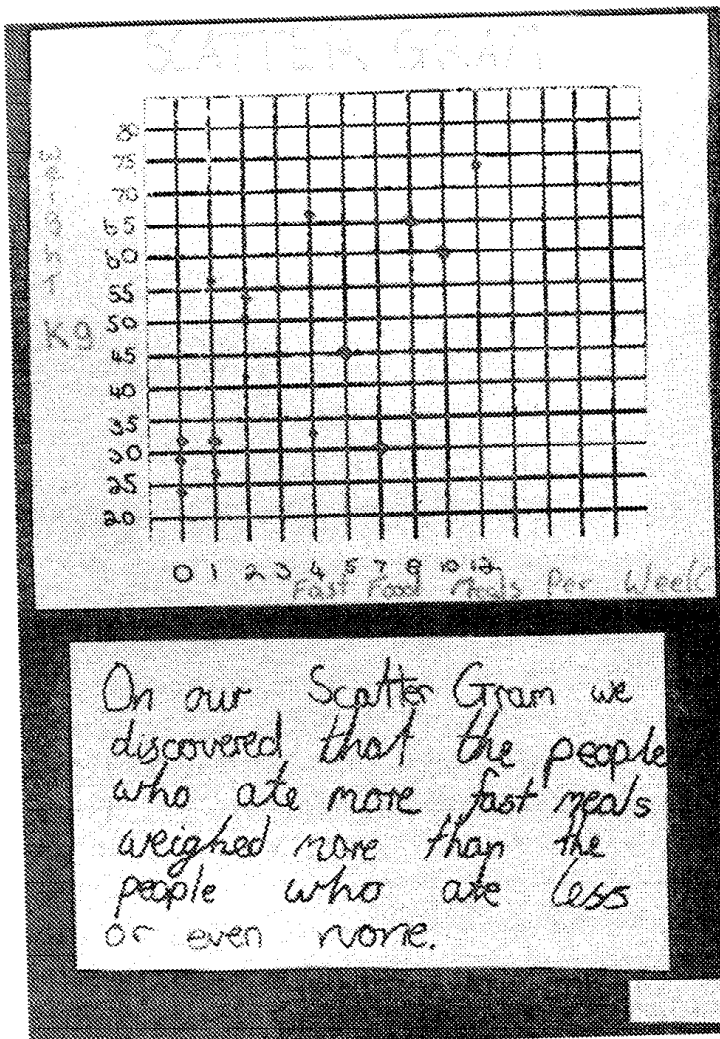 SCATTER GRAM
Weight
Kg
80
75
70
65
60
55
50
45
40
35
30
25
20
0 1 2 3 4 5 7 8 10 12
Fast Food Meals Per Week
On our Scatter Gram we
discovered that the people
who ate more fast meals
weighed more than the
people who ate less
or even none.